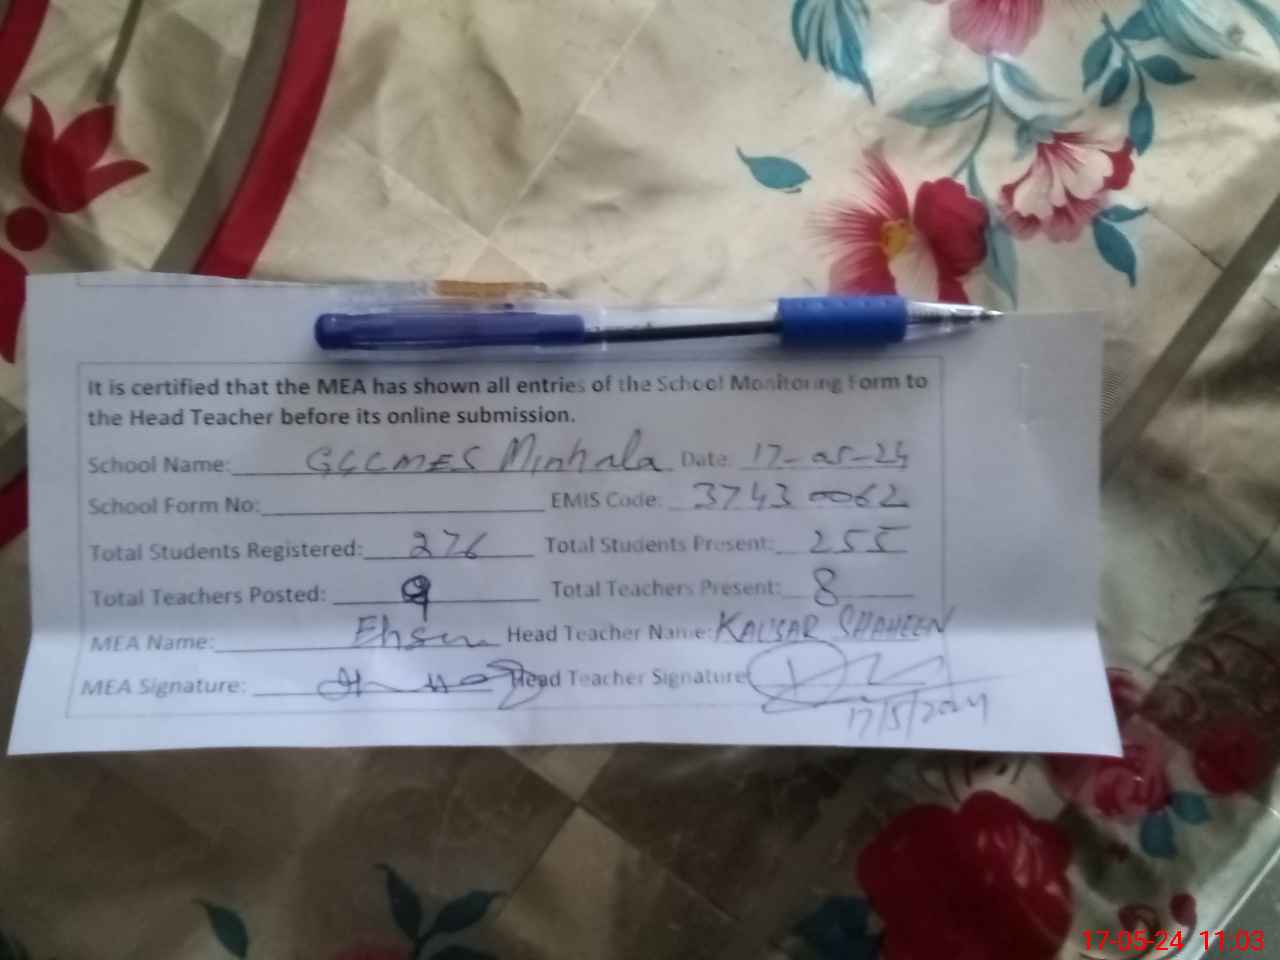 It is certified that the MEA has shown all entries of the School Monitoring Form to
the Head Teacher before its online submission.
School Name: GGCMES Minhala Date: 17-05-24
School Form No: EMIS Code: 37430062
Total Students Registered: 276 Total Students Present: 255
Total Teachers Posted: 9 Total Teachers Present: 8
MEA Name: Ehsan Head Teacher Name: KAUSAR SHAHEEN
MEA Signature: Head Teacher Signature
17/5/2024
17-05-24 11:03